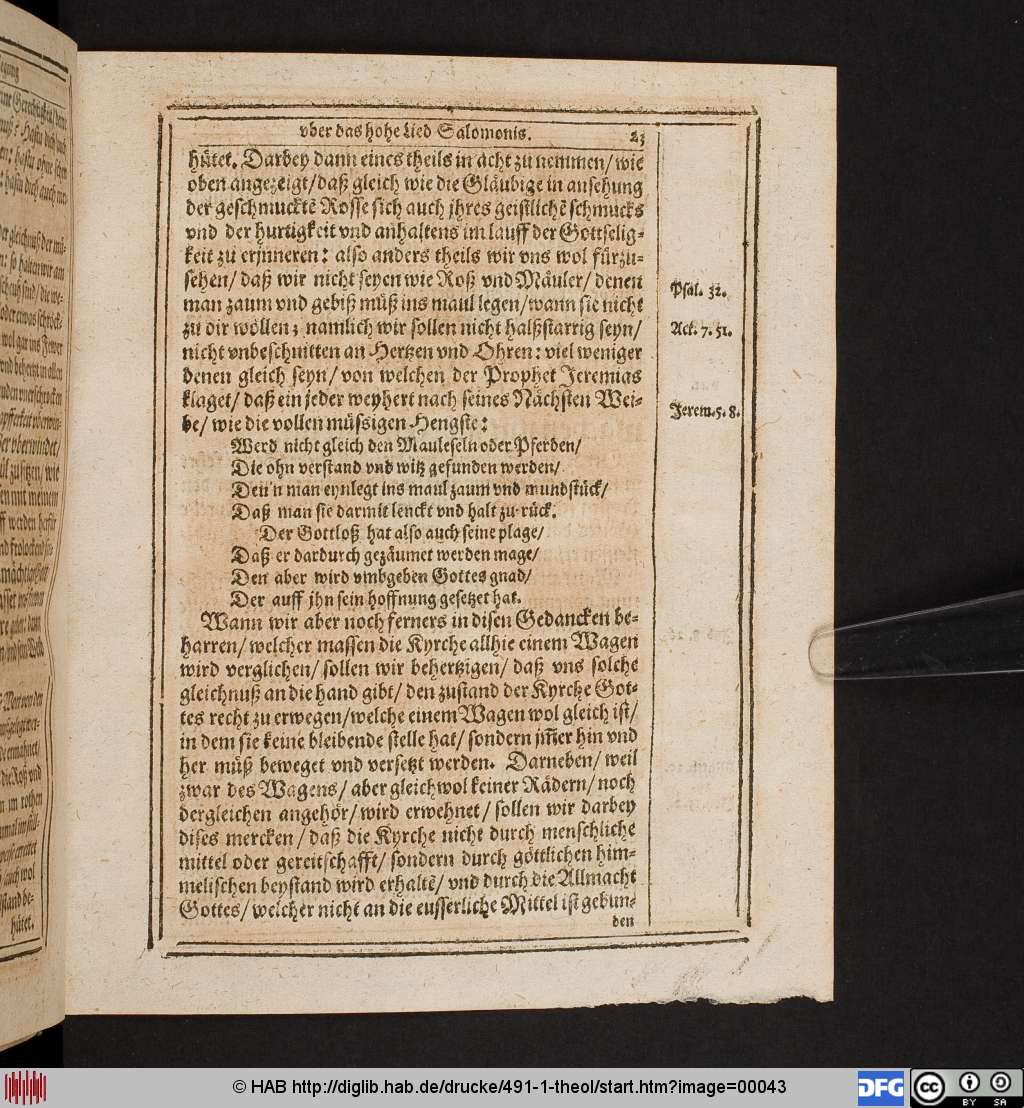 vber das hohe Lied Salomonis. 23
hütet. Darbey dann eines theils in acht zu nemmen/ wie
oben angezeigt/ daß gleich wie die Gläubige in ansehung
der geschmucktẽ Rosse sich auch jhres geistlichẽ schmucks
vnd der hurtigkeit vnd anhaltens im lauff der Gottselig-
keit zu erjnneren: also anders theils wir vns wol fürzu-
sehen/ daß wir nicht seyen wie Roß vnd Mäuler/ denen
man zaum vnd gebiß müß ins maul legen/ wann sie nicht
zu dir wöllen; namlich wir sollen nicht halßstarrig seyn/
nicht vnbeschnitten an Hertzen vnd Ohren: viel weniger
denen gleich seyn/ von welchen der Prophet Jeremias
klaget/ daß ein jeder weyhert nach seines Nächsten Wei-
be/ wie die vollen müssigen Hengste:
Psal. 32.
Act. 7. 51.
Jerem. 5. 8.
Werd nicht gleich den Mauleseln oder Pferden/
Die ohn verstand vnd witz gefunden werden/
Den'n man eynlegt ins maul zaum vnd mundstück/
Daß man sie darmit lenckt vnd halt zu rück.
Der Gottloß hat also auch seine plage/
Daß er dardurch gezäumet werden mage/
Den aber wird vmbgeben Gottes gnad/
Der auff jhn sein hoffnung gesetzet hat.
Wann wir aber noch ferners in disen Gedancken be-
harren/ welcher massen die Kyrche allhie einem Wagen
wird verglichen/ sollen wir behertzigen/ daß vns solche
gleichnuß an die hand gibt/ den zustand der Kyrche Got-
tes recht zu erwegen/ welche einem Wagen wol gleich ist/
in dem sie keine bleibende stelle hat/ sondern jm̃er hin vnd
her müß beweget vnd versetzt werden. Darneben/ weil
zwar des Wagens/ aber gleichwol keiner Rädern/ noch
dergleichen angehör/ wird erwehnet/ sollen wir darbey
dises mercken/ daß die Kyrche nicht durch menschliche
mittel oder gereitschafft/ sondern durch göttlichen him-
melischen beystand wird erhaltẽ/ vnd durch die Allmacht
Gottes/ welcher nicht an die eusserliche Mittel ist gebun-
den
© HAB http://diglib.hab.de/drucke/491-1-theol/start.htm?image=00043
DFG
cc
BY SA